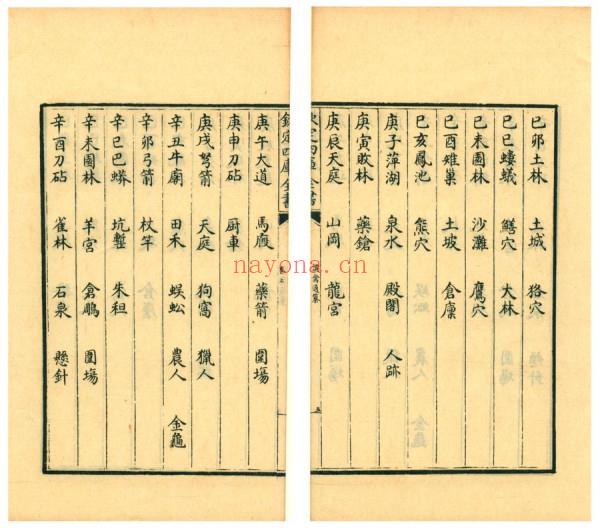 己卯土林 土城 狢穴
己巳螻蟻 鱔穴 大林
己未園林 沙灘 鷹穴
己酉雉巢 土坡 倉廪
己亥鳳池 熊穴
庚子萍湖 泉水 殿閣 人跡
庚寅敗林 藥鎗
庚辰天庭 山岡 龍宮
欽定四庫全書
五
欽定四庫全書
庚午大道 馬廐 藥箭 圍場
庚申刀砧 厨車
庚戌弩箭 天庭 狗窩 獵人
辛丑牛廟 田禾 蜈蚣 農人 金龜
辛卯弓箭 杖竿
辛巳巴蟒 坑塹 朱
辛未園林 羊宮 倉鵬 圍場
辛酉刀砧 雀林 石泉 懸針
nayona.cn